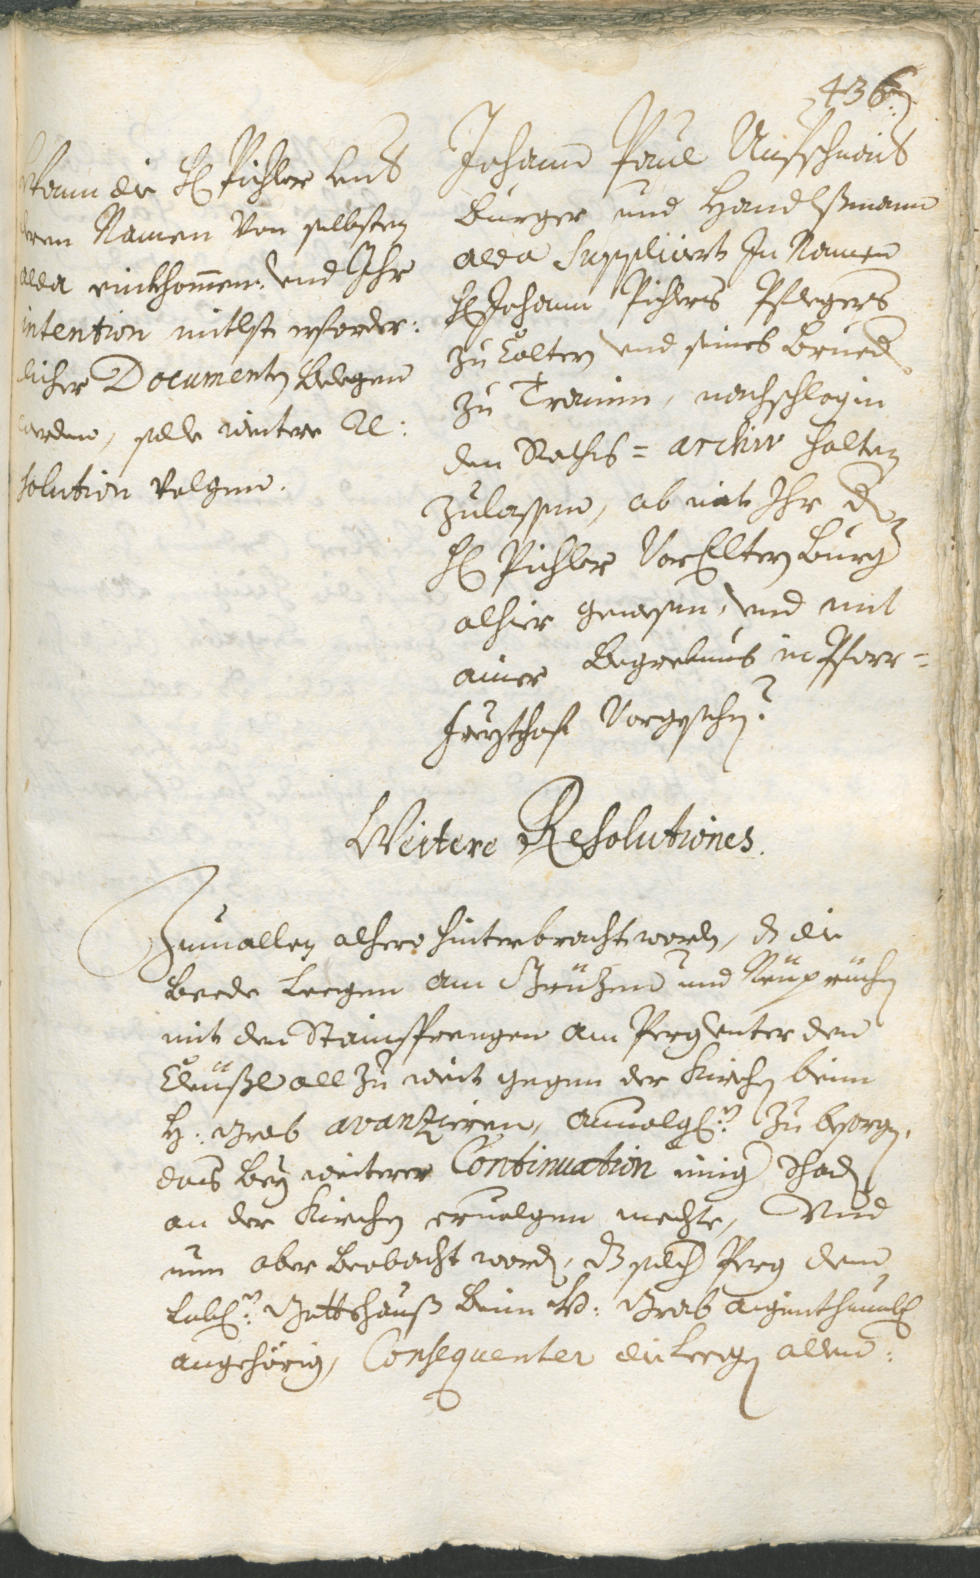 436.
Wann die H: Pichler vnd
deren Namen von selbsten
alda einkhommen: vnd Ihr
intention mitlst erforder:
licher Documenten belegen
werden, solle weitere Re:
solution volgen.
Johann Paul Aufschnait
Burger und Handlsmann
alda Suppliciert In Namen
H: Johann Pichlers Pflegers
zu Caltern vnd seines Brued:
zu Tramin, nachschlag in
den Raths=archiv halten
zulassen, ob nit Ihr der
H: Pichler VorEltern Burger
alhier gewesen, vnd mit
ainer Begrebnus in Pfarr=
freythof Vorgesehen?
Weitere Resolutiones.
Zumallen alhero hinterbracht worden, dz die
beede am und
mit den Stainsprengen am Perg unter den
all zu weit gegen der Kirchen beim
H: Grab avanzieren, zu besorgen,
das bey weiterer Continuation ainig Schad
an der Kirchen ervolgen mechte, Vnd
nun aber beobacht worden, dz solch Perg dem
Lobl: Gottshauß beim H: Grab aigenthumblich
angehörig, Consequenter die allein: